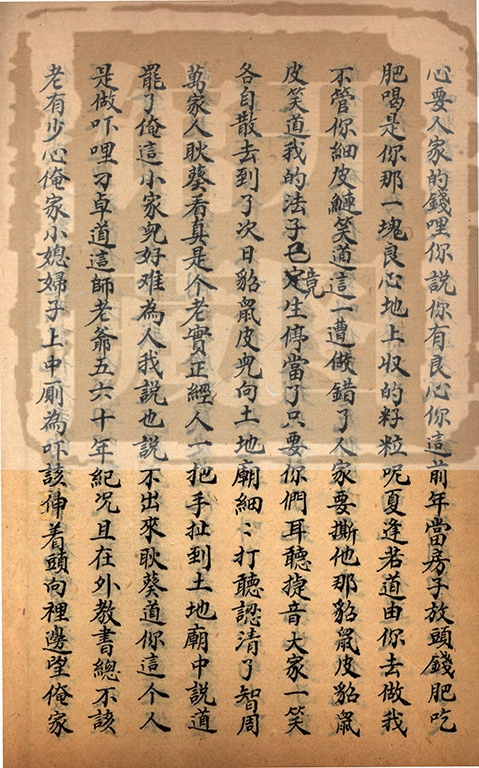 心要人家的錢哩你說你有良心你這前年當房子放頭錢肥吃
肥喝是你那一塊良心地上收的籽粒呢夏逢若道由你去做我
不管你細皮鰱笑道這一遭做錯了人家要撕他那貂鼠皮貂鼠
皮笑道我的法子已竟定生停當了只要你們耳聽捷音大家一笑
各自散去到了次日貂鼠皮兜向土地廟細：打聽認清了智周
萬家人耿葵看真是个老實正經人一把手扯到土地廟中說道
罷了俺這小家兒好难為人我說也說不出來耿葵道你這个人
是做吓哩刁卓道這師老爺五六十年紀况且在外教書總不該
老有少心俺家小媳婦子上中厕為吓該伸着頭向裡邊望俺家